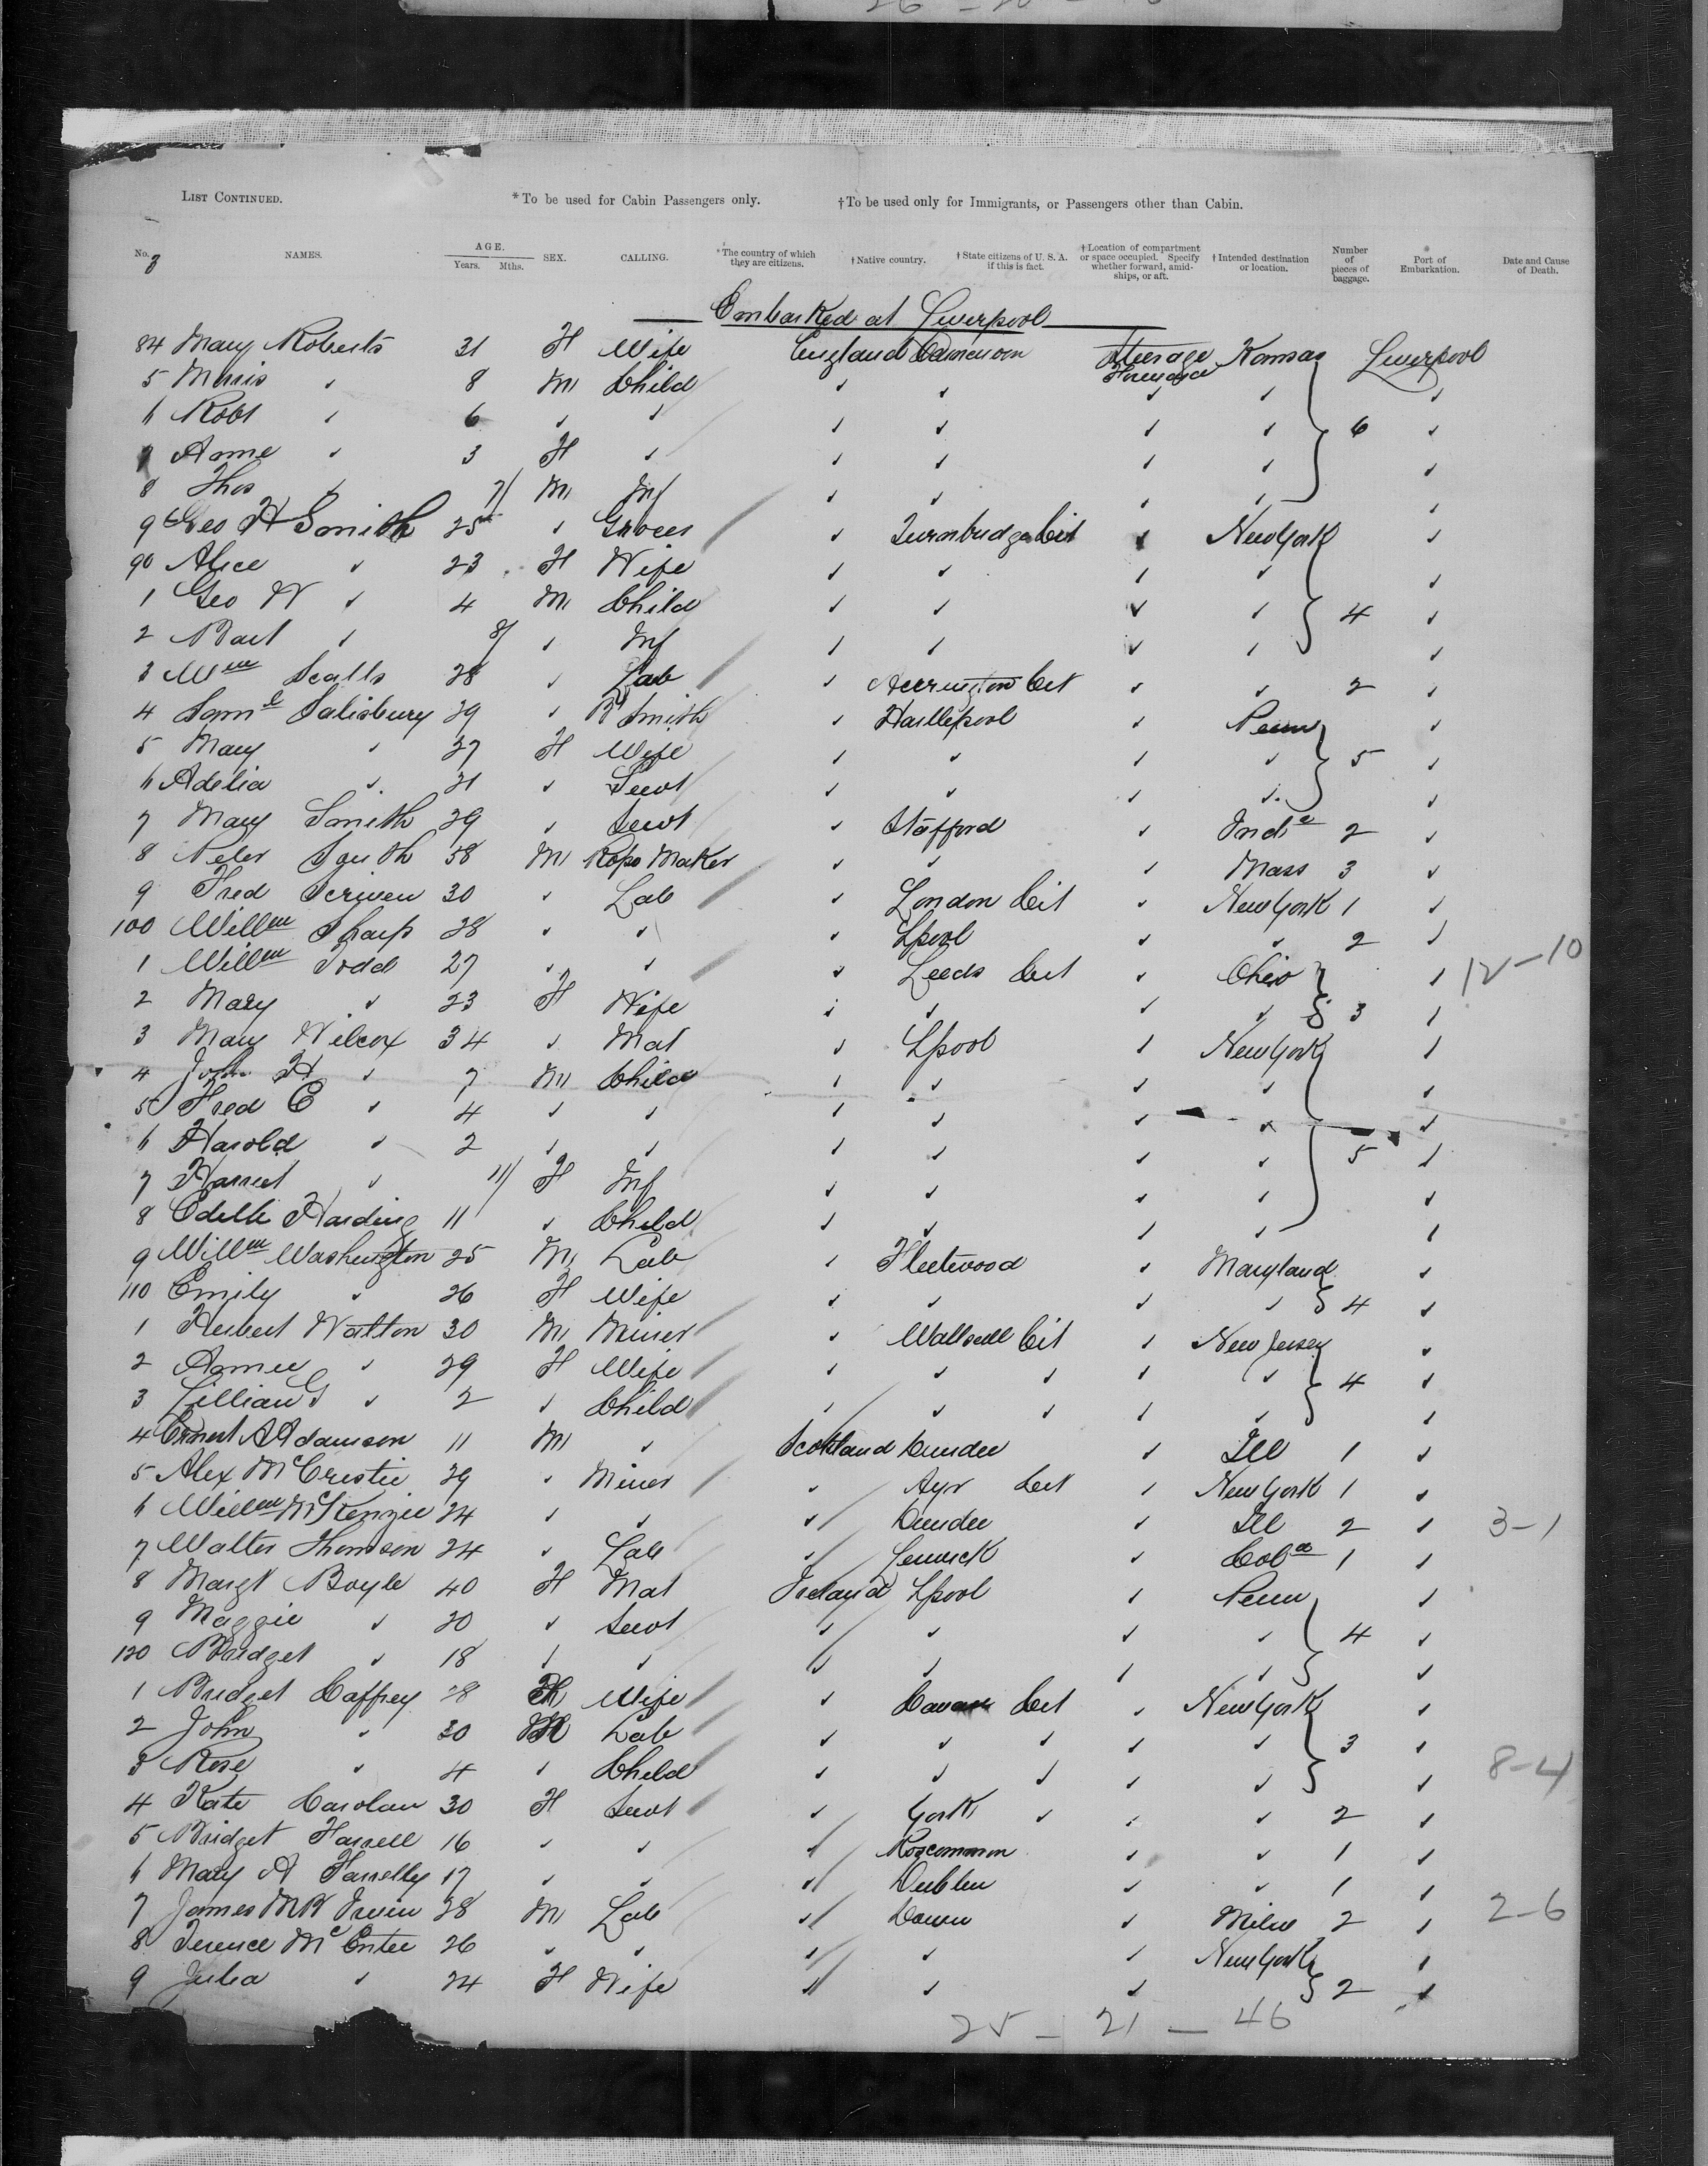 LIST CONTINUED. *To be used for Cabin Passengers only. †To be used only for Immigrants, or Passengers other than Cabin.
No. NAMES. AGE. Years. Mths. SEX. CALLING. *The country of which they are citizens. †Native country. †State citizens of U. S. A. if this is fact. †Location of compartment or space occupied. Specify whether forward, amidships, or aft. †Intended destination or location. Number of pieces of baggage. Port of Embarkation. Date and Cause of Death.
3
Embarked at Liverpool
84 Mary Roberts 31 F Wife England Steerage Kansas Liverpool
5 Morris " 8 M Child " " " " "
6 Robt " 6 " " " " " " 6 "
7 Annie " 3 F " " " " " "
8 Thos " 7/ M Inf " " " " "
9 Geo H Smith 25 " Grocer " Cit " New York "
90 Alice " 23 F Wife " " " " "
1 Geo W " 4 M Child " " " " 4 "
2 " 8/ " Inf " " " " "
3 Wm 28 " Lab " Accrington Cit " " 2 "
4 Saml Salisbury 29 " B Smith " Hartlepool " Penn "
5 Mary " 27 F Wife " " " " 5 "
6 Adelia " 21 " Servt " " " " "
7 Mary Smith 29 " Servt " Stafford " Inda 2 "
8 Peter 58 M Rope Maker " " " Mass 3 "
9 Fred Scriven 30 " Lab " London Cit " New York 1 "
100 Willm Sharp 28 " " " Lpool " " 2 "
1 Willm Todd 27 " " " Leeds Cit " Ohio " 12-10
2 Mary " 23 F Wife " " " " 3 "
3 Mary Wilcox 34 " Mat " Lpool " New York "
4 John H " 7 M Child " " " " "
5 Fred E " 4 " " " " " " "
6 Harold " 2 " " " " " " 5 "
7 Harriet " 11/ F Inf " " " " "
8 Edith Harding 11 " Child " " " " "
9 Willm Washington 25 M Lab " Fleetwood " Maryland "
110 Emily " 26 F Wife " " " " 4 "
1 Herbert Watton 30 M Miner " Wallsall Cit " New Jersey "
2 Annie " 29 F Wife " " " " " 4 "
3 Lillian G " 2 " Child " " " " " "
4 Ernest A Adamson 11 M " Scotland Dundee " Ill 1 "
5 Alex McCrestie 29 " Miner " Ayr Cit " New York 1 "
6 Willm McKenzie 24 " " " Dundee " Ill 2 " 3-1
7 Walter Thomson 24 " Lab " Lerwick " Cola 1 "
8 Margt Boyle 40 F Mat Ireland Lpool " Penn "
9 Maggie " 20 " Servt " " " " 4 "
120 Bridget " 18 " " " " " " "
1 Bridget Caffrey 28 F Wife " Cavan Cit " New York "
2 John " 30 M Lab " " " " " 3 "
3 Rose " 4 " Child " " " " " " 8-4
4 Kate Carolan 30 F Servt " York " " " 2 "
5 Bridget Farrell 16 " " " Roscommon " " 1 "
6 Mary A Farrelly 17 " " " Dublin " " 1 "
7 James Irwin 28 M Lab " " Milw 2 " 2-6
8 Terence McEntee 26 " " " " " New York "
9 Julia " 24 F Wife " " " 2 "
25 - 21 - 46